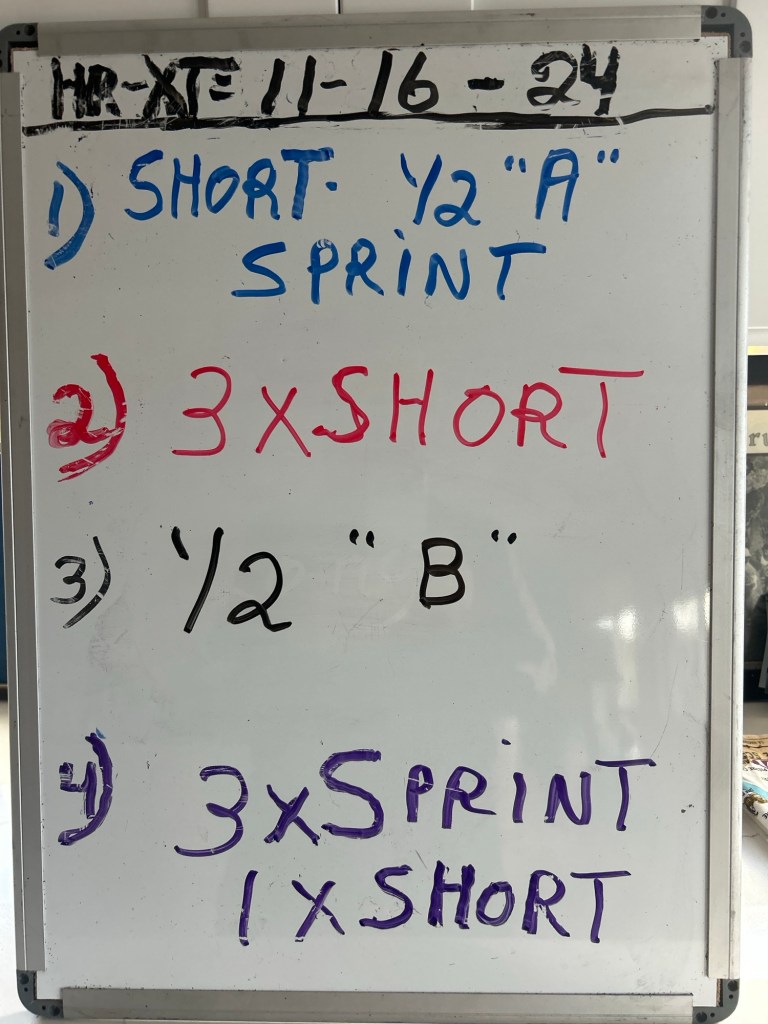 HR-XT= 11-16-24
1) SHORT. 1/2 "A"
SPRINT
2) 3 X SHORT
3) 1/2 "B"
4) 3 X SPRINT
1 X SHORT